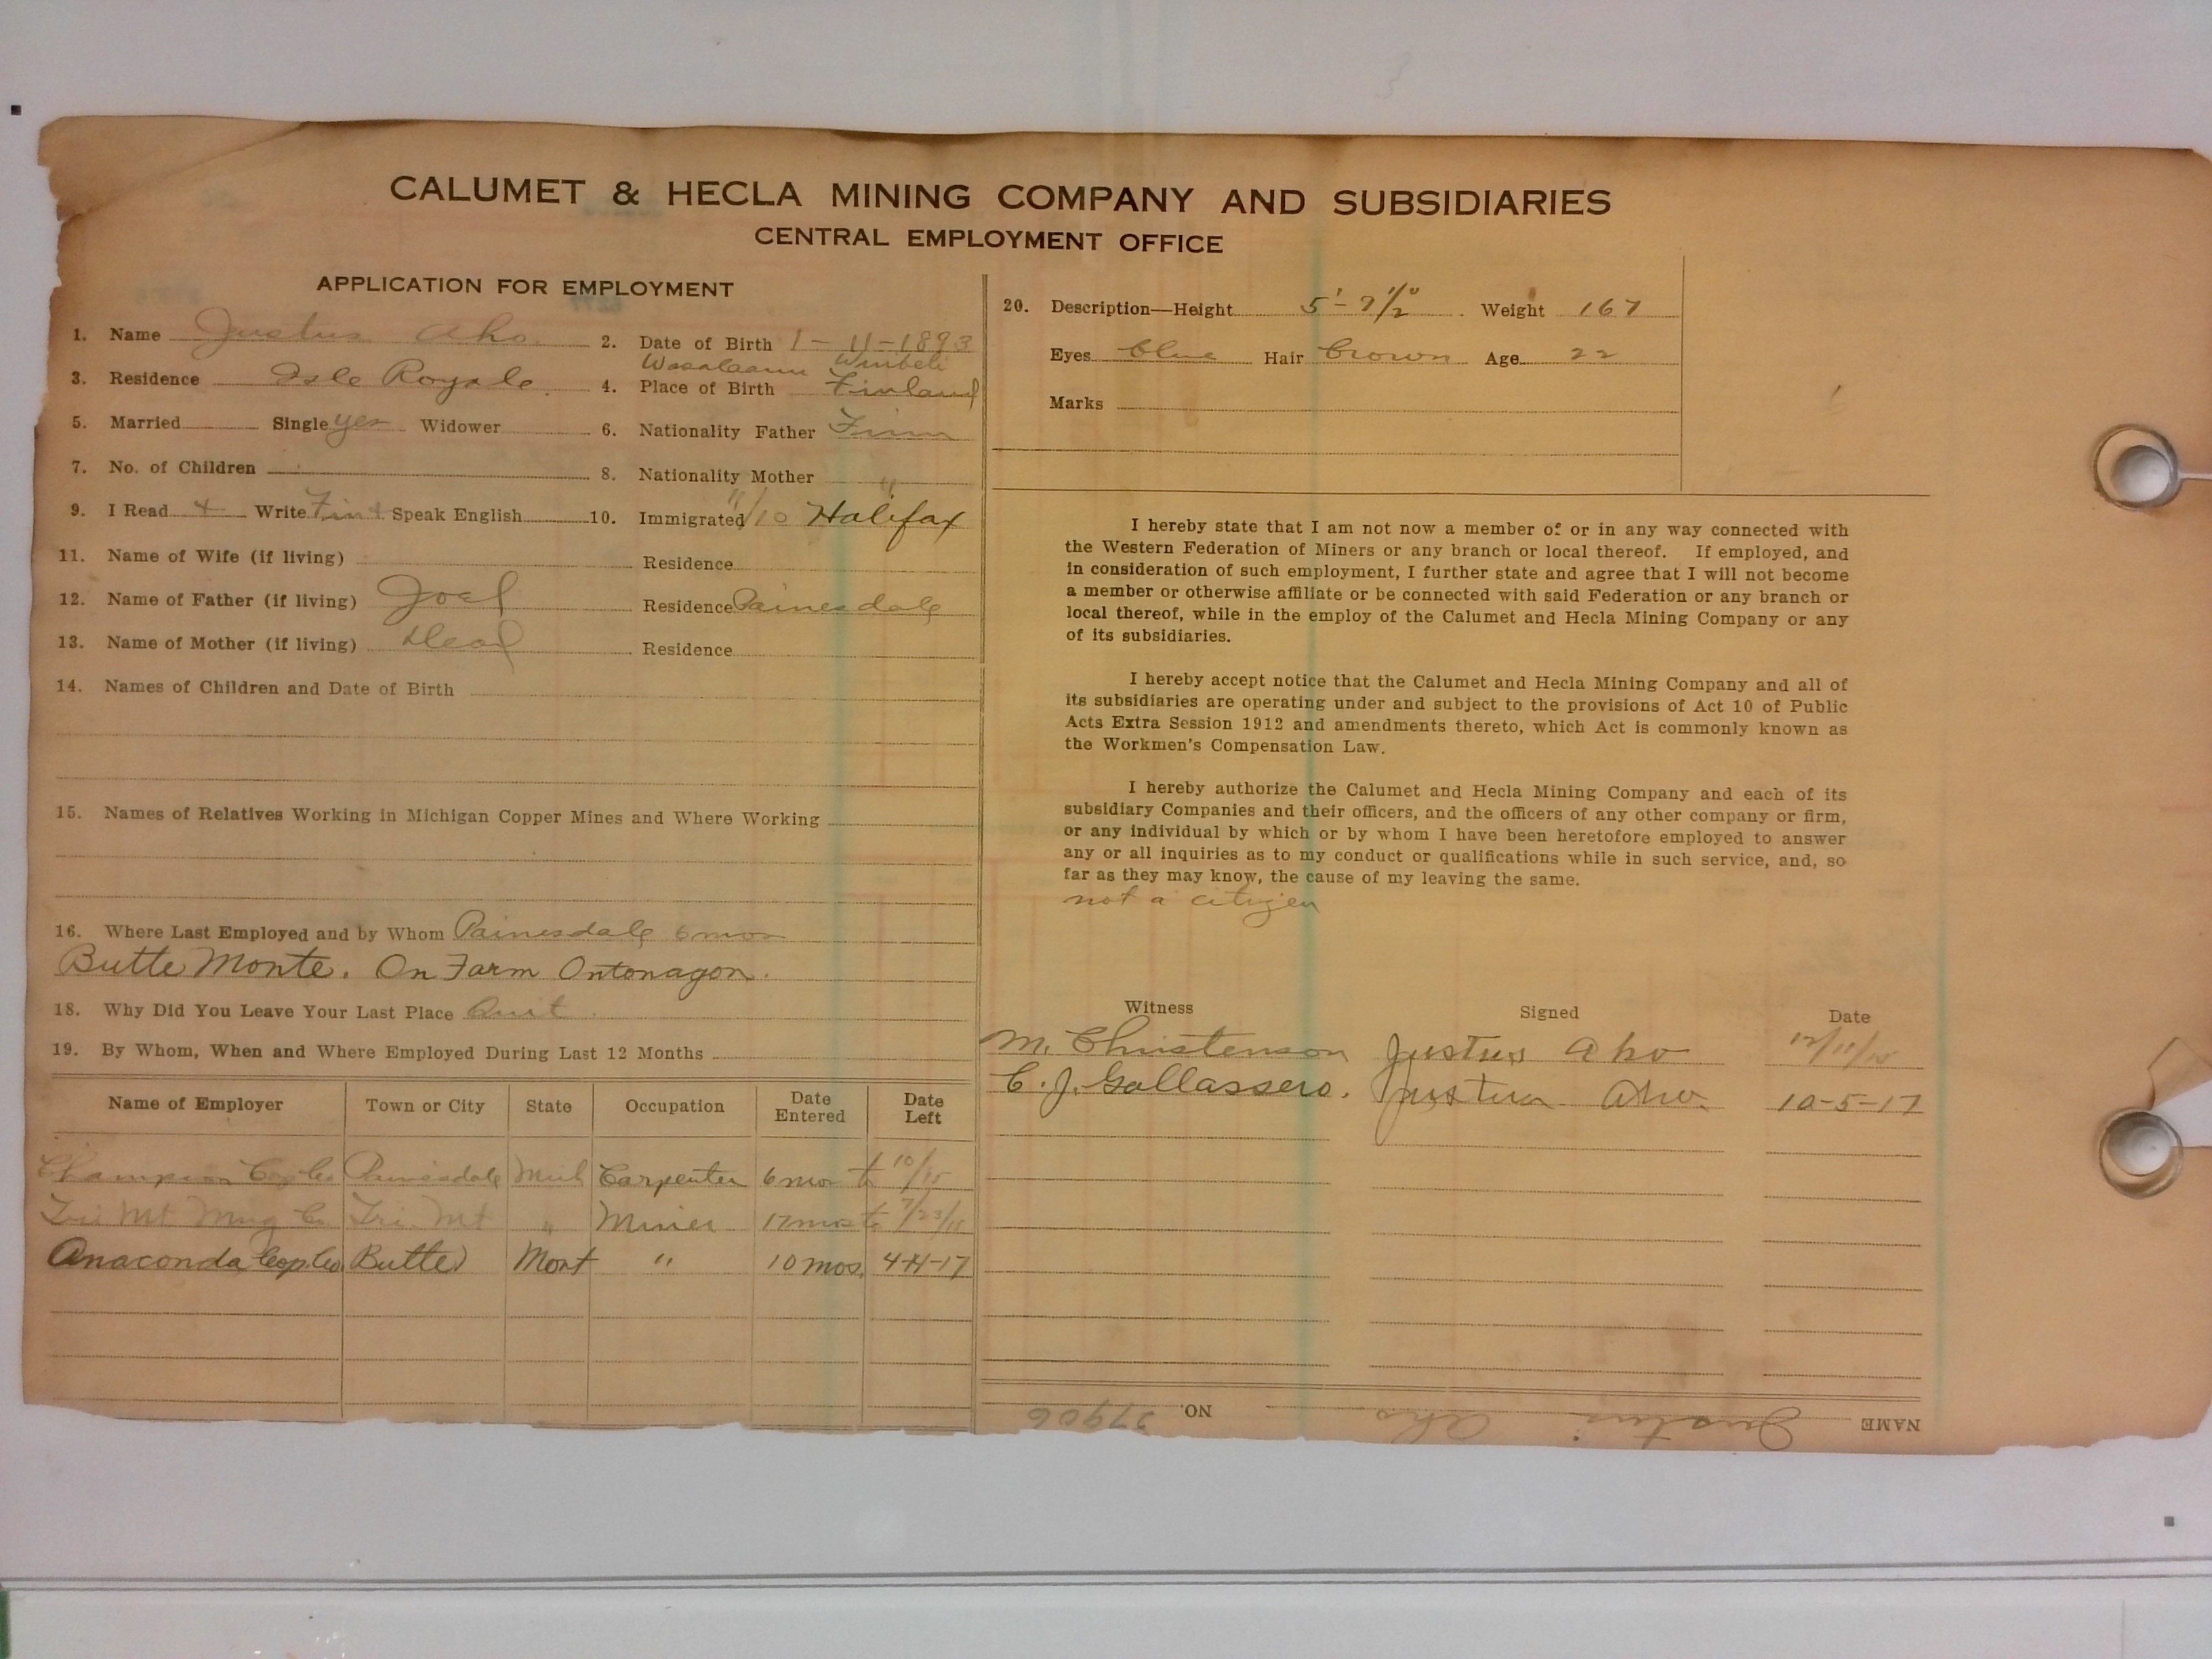 CALUMET & HECLA MINING COMPANY AND SUBSIDIARIES
CENTRAL EMPLOYMENT OFFICE
APPLICATION FOR EMPLOYMENT
1. Name Justus Aho. 2. Date of Birth 1-11-1893
3. Residence Isle Royale. 4. Place of Birth Finland
5. Married Single yes Widower 6. Nationality Father Finn
7. No. of Children 8. Nationality Mother "
9. I Read & Write Finn. Speak English 10. Immigrated /10 Halifax
11. Name of Wife (if living) Residence
12. Name of Father (if living) Joel Residence Painesdale
13. Name of Mother (if living) Dead Residence
14. Names of Children and Date of Birth
15. Names of Relatives Working in Michigan Copper Mines and Where Working
16. Where Last Employed and by Whom Painesdale 6 mos
Butte Monte. On Farm Ontonagon.
18. Why Did You Leave Your Last Place Quit.
19. By Whom, When and Where Employed During Last 12 Months
Name of Employer Town or City State Occupation Date Entered Date Left
Champion Cop Co Painesdale Mich Carpenter 6 mos to 10/15
Tri Mt Mng Co Tri. Mt " Miner 17 mos to
Anaconda Cop. Co. Butte Mont " 10 mos. 4-11-17
20. Description—Height 5'-7 1/2" Weight 167
Eyes blue Hair brown Age 22
Marks
I hereby state that I am not now a member of or in any way connected with
the Western Federation of Miners or any branch or local thereof. If employed, and
in consideration of such employment, I further state and agree that I will not become
a member or otherwise affiliate or be connected with said Federation or any branch or
local thereof, while in the employ of the Calumet and Hecla Mining Company or any
of its subsidiaries.
I hereby accept notice that the Calumet and Hecla Mining Company and all of
its subsidiaries are operating under and subject to the provisions of Act 10 of Public
Acts Extra Session 1912 and amendments thereto, which Act is commonly known as
the Workmen's Compensation Law.
I hereby authorize the Calumet and Hecla Mining Company and each of its
subsidiary Companies and their officers, and the officers of any other company or firm,
or any individual by which or by whom I have been heretofore employed to answer
any or all inquiries as to my conduct or qualifications while in such service, and, so
far as they may know, the cause of my leaving the same.
not a citizen
Witness Signed Date
M. Christenson Justus Aho 12/11/15
C. J. Gallassero. Justus Aho. 10-5-17
NAME Justus Aho NO. 37906